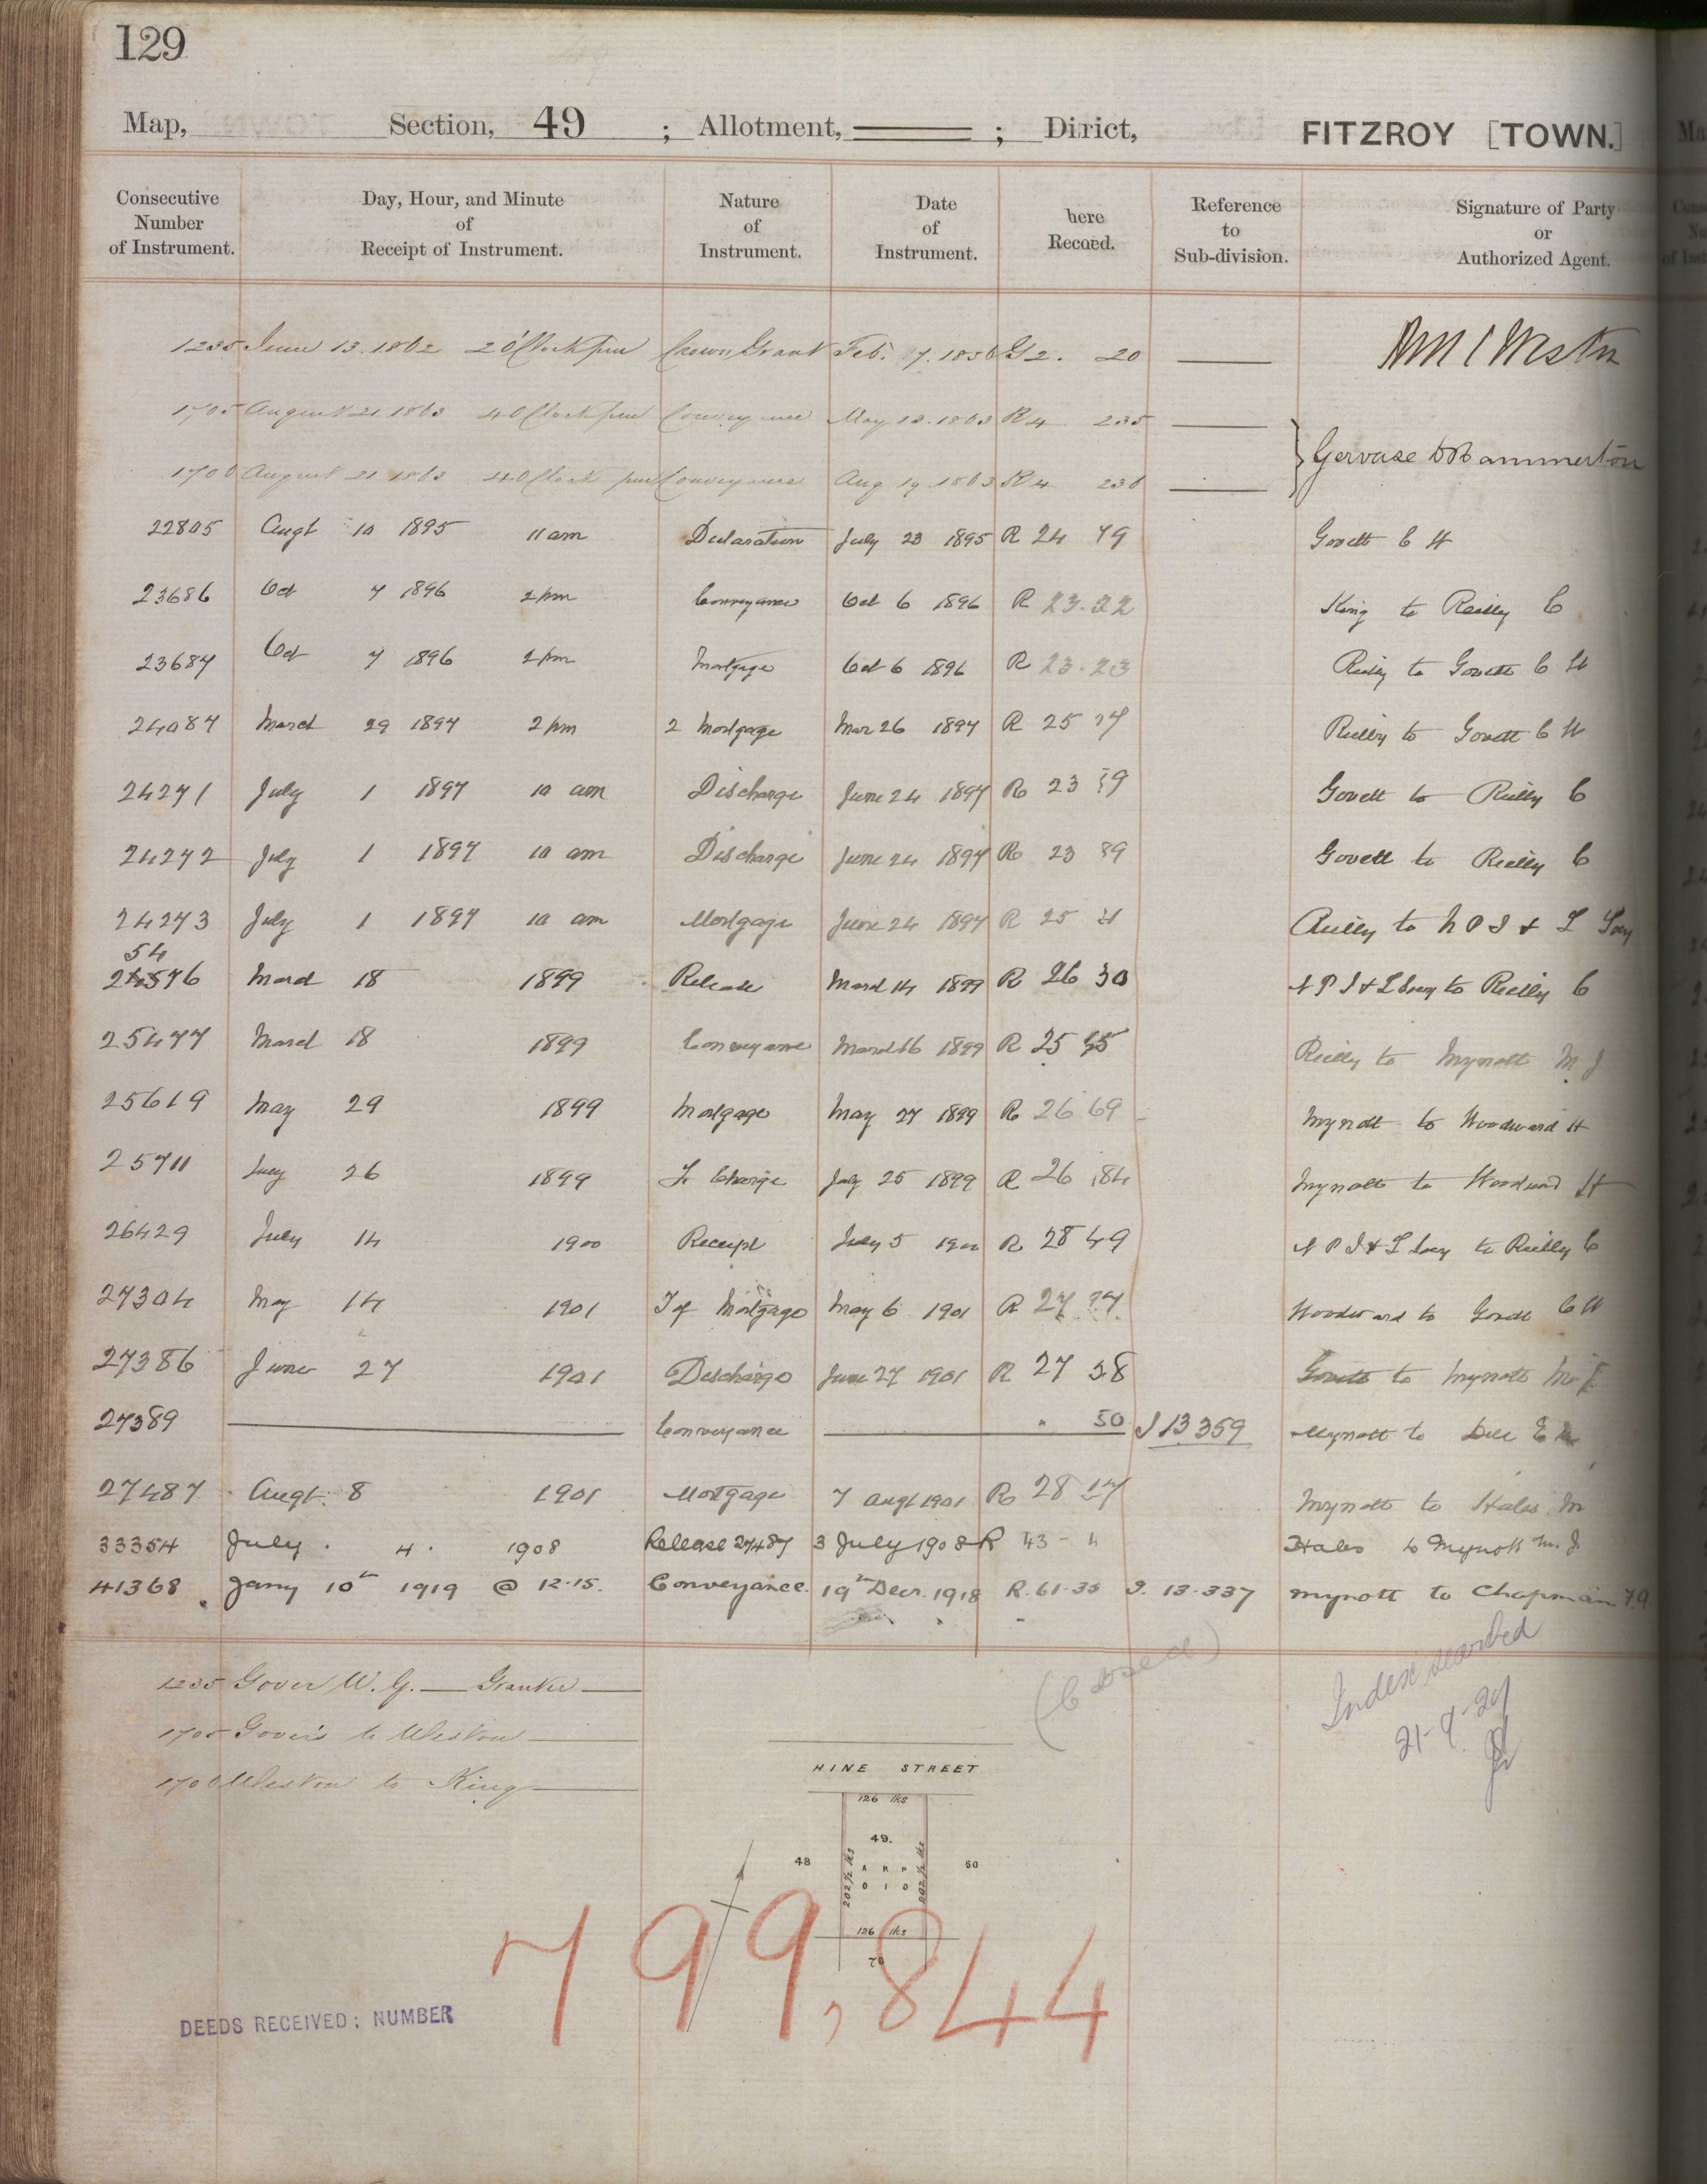 129
Map, Section, 49 ; Allotment, ——— ; Dirict, FITZROY [TOWN.]
Consecutive Number of Instrument. Day, Hour, and Minute of Receipt of Instrument. Nature of Instrument. Date of Instrument. here Recoed. Reference to Sub-division. Signature of Party or Authorized Agent.
1235 June 13. 1862 2 O'Clock pm Crown Grant Feb. 7. 1856 G 2. 20 ———
1705 August 21 1863 4 O Clock pm Conveyance May 13. 1863 R 4 235 ———
1706 August 21 1863 4 O Clock pm Conveyance Aug 19 1863 R 4 236 ——— Gervase D Hammerton
22805 Augt 10 1895 11 am Declaration July 23 1895 R 24 79 Govett C H
23686 Oct 7 1896 2 pm Conveyance Oct 6 1896 R 23. 22 King to Reilly C
23687 Oct 7 1896 2 pm Mortgage Oct 6 1896 R 23. 23 Reilly to Govett C H
24087 March 29 1897 2 pm 2 Mortgage Mar 26 1897 R 25 Reilly to Govett C H
24271 July 1 1897 10 am Discharge June 24 1897 R 23 Govett to Reilly C
24272 July 1 1897 10 am Discharge June 24 1897 R 23 89 Govett to Reilly C
24273 July 1 1897 10 am Mortgage June 24 1897 R 25 Reilly to N P I & L Socy
54
March 18 1899 Release March 14 1899 R 26 30 N P I & L Socy to Reilly C
25477 March 18 1899 Conveyance March 16 1899 R 25 Reilly to Mynott M J
25619 May 29 1899 Mortgage May 27 1899 R 26 69 Mynott to Woodward H
25711 July 26 1899 F. Charge July 25 1899 R 26 84 Mynott to Woodward H
26429 July 14 1900 Receipt July 5 1900 R 28 49 N P I & L Socy to Reilly C
27304 May 14 1901 T of Mortgage May 6 1901 R 27 Woodward to Govett C H
27386 June 27 1901 Discharge June 27 1901 R 27 38 Govett to Mynott
27389 ——— Conveyance ——— " 50 I 13 359 Mynott to Dell E
27487 Augt. 8 1901 Mortgage 7 Augt 1901 R 28 17 Mynott to Hales M
33354 July 4 1908 Release 27487 3 July 1908 R 43 - 4 Hales to Mynott M. J.
41368 Jany 10th 1919 @ 12.15. Conveyance. 19th Decr. 1918 R. 61-33 I. 13.337 Mynott to Chapman
1235 Gover W. G. — Grantee —
1705 Gover to Weston ———
1706 Weston to King ———
(Closed)
Index searched
21-9-27
HINE STREET
126 lks
49.
48
50
A R P
0 1 0
202½ lks
202½ lks
126 lks
70
799,844
DEEDS RECEIVED: NUMBER